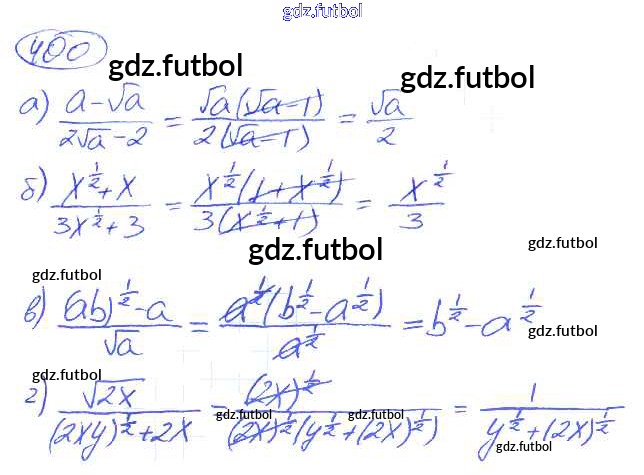 gdz.futbol
400
gdz.futbol
gdz.futbol
а) (a-√a)/(2√a-2) = (√a(√a-1))/(2(√a-1)) = √a/2
б) (x^(1/2)+x)/(3x^(1/2)+3) = (x^(1/2)(1+x^(1/2)))/(3(x^(1/2)+1)) = x^(1/2)/3
gdz.futbol
gdz.futbol
gdz.futbol
в) ((ab)^(1/2)-a)/√a = (a^(1/2)(b^(1/2)-a^(1/2)))/a^(1/2) = b^(1/2)-a^(1/2)
gdz.futbol
gdz.futbol
г) √2x/((2xy)^(1/2)+2x) = (2x)^(1/2)/((2x)^(1/2)(y^(1/2)+(2x)^(1/2))) = 1/(y^(1/2)+(2x)^(1/2))
gdz.futbol
gdz.futbol